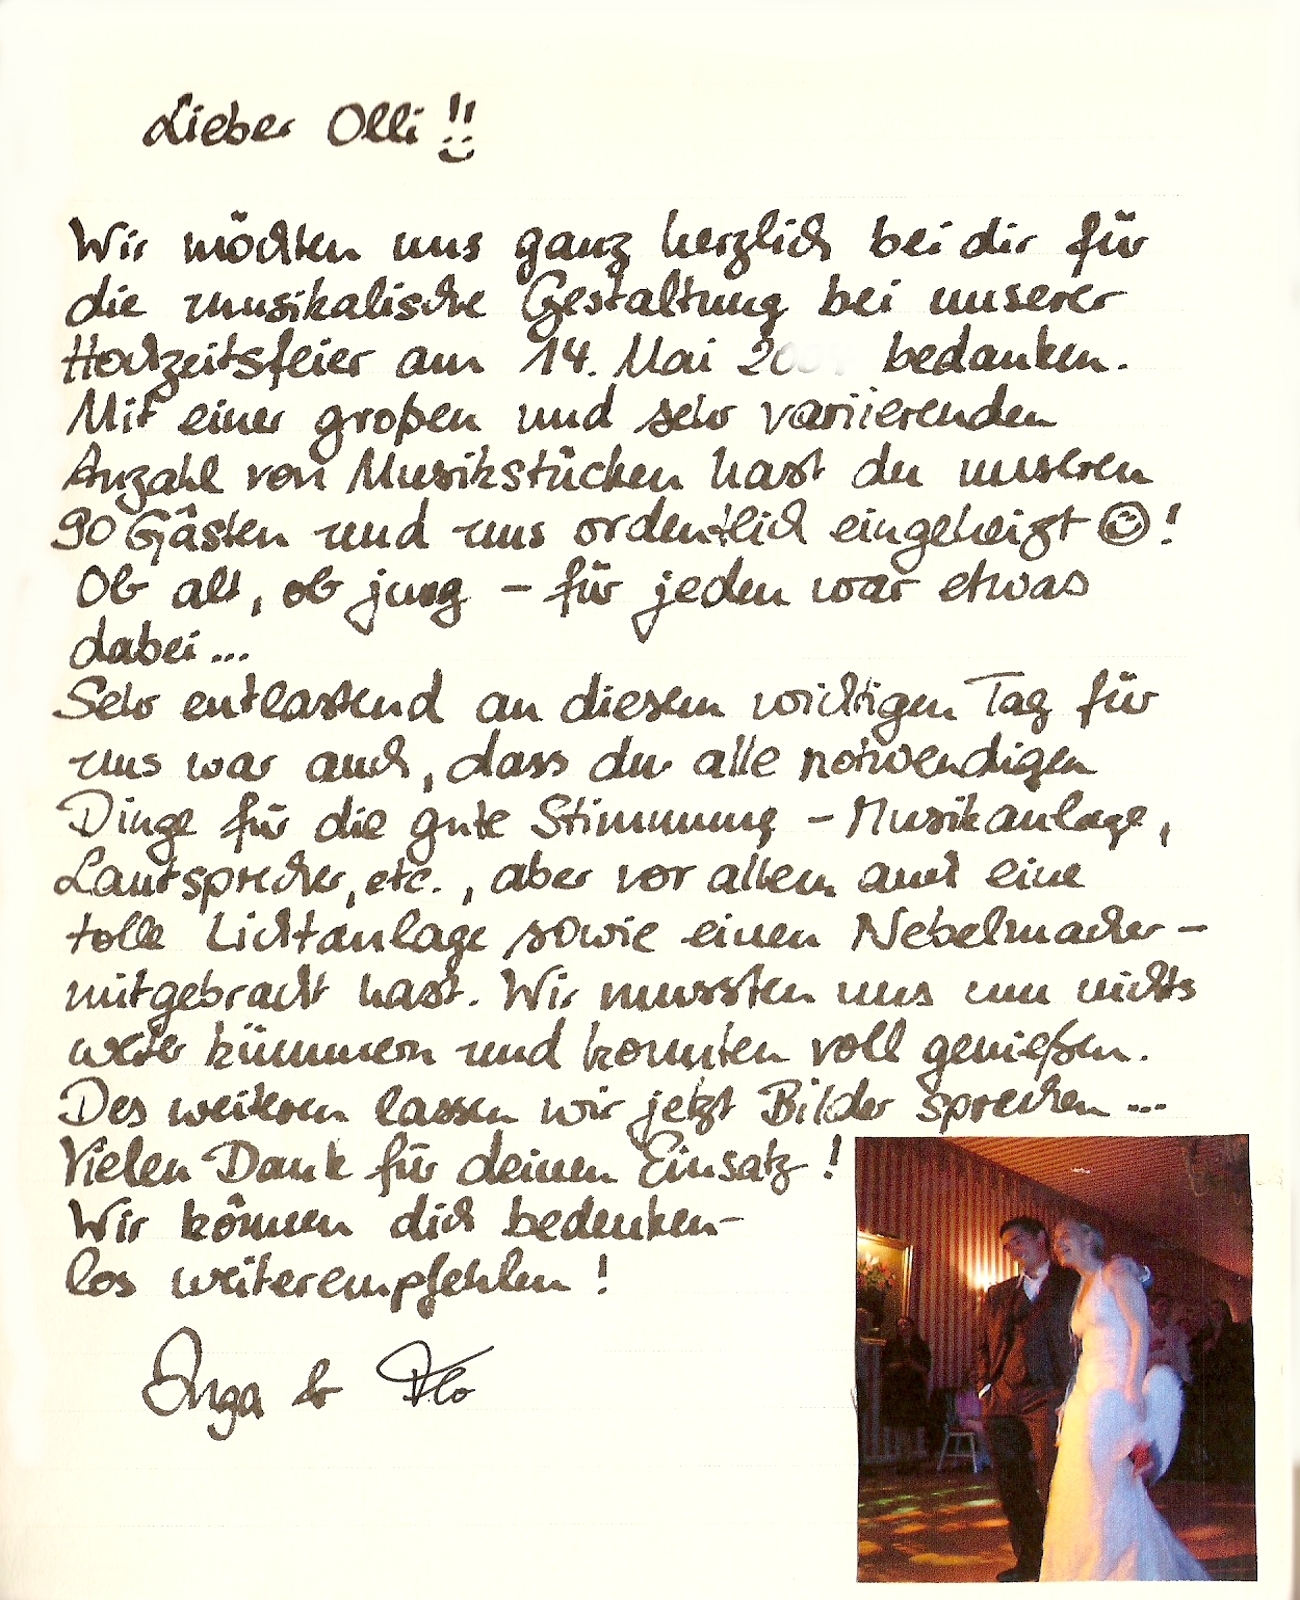 Lieber Olli !!
Wir möchten uns ganz herzlich bei dir für
die musikalische Gestaltung bei unserer
Hochzeitsfeier am 14. Mai bedanken.
Mit einer großen und sehr variierenden
Anzahl von Musikstücken hast du unseren
90 Gästen und uns ordentlich eingeheizt ☺!
Ob alt, ob jung – für jeden war etwas
dabei...
Sehr entlastend an diesem wichtigen Tag für
uns war auch, dass du alle notwendigen
Dinge für die gute Stimmung – Musikanlage,
Lautsprecher, etc., aber vor allem auch eine
tolle Lichtanlage sowie einen Nebelmacher –
mitgebracht hast. Wir mussten uns um nichts
weiter kümmern und konnten voll genießen.
Des weiteren lassen wir jetzt Bilder sprechen ...
Vielen Dank für deinen Einsatz !
Wir können dich bedenken-
los weiterempfehlen !
Inga & Flo